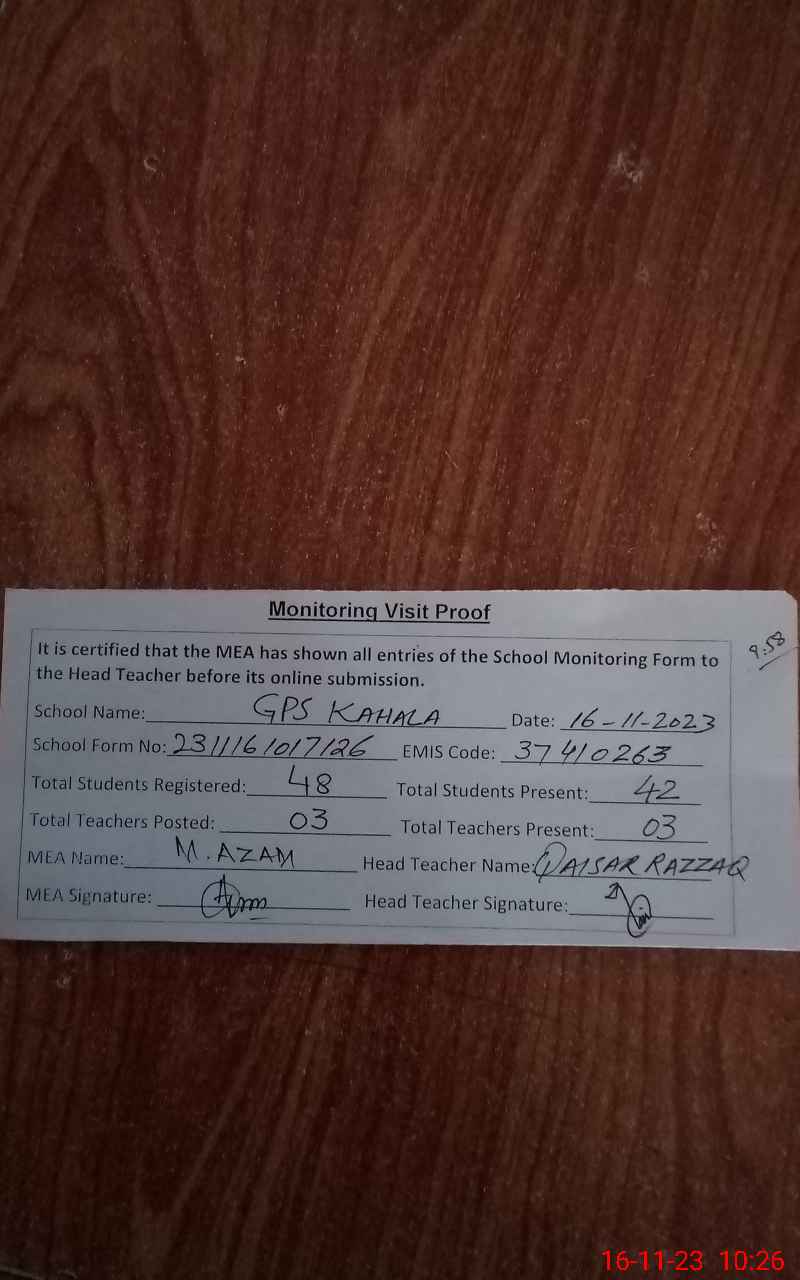 Monitoring Visit Proof
9:58
It is certified that the MEA has shown all entries of the School Monitoring Form to
the Head Teacher before its online submission.
School Name: GPS KAHALA Date: 16-11-2023
School Form No: 2311161017126 EMIS Code: 37410263
Total Students Registered: 48 Total Students Present: 42
Total Teachers Posted: 03 Total Teachers Present: 03
MEA Name: M. AZAM Head Teacher Name: QAISAR RAZZAQ
MEA Signature: Head Teacher Signature:
16-11-23 10:26